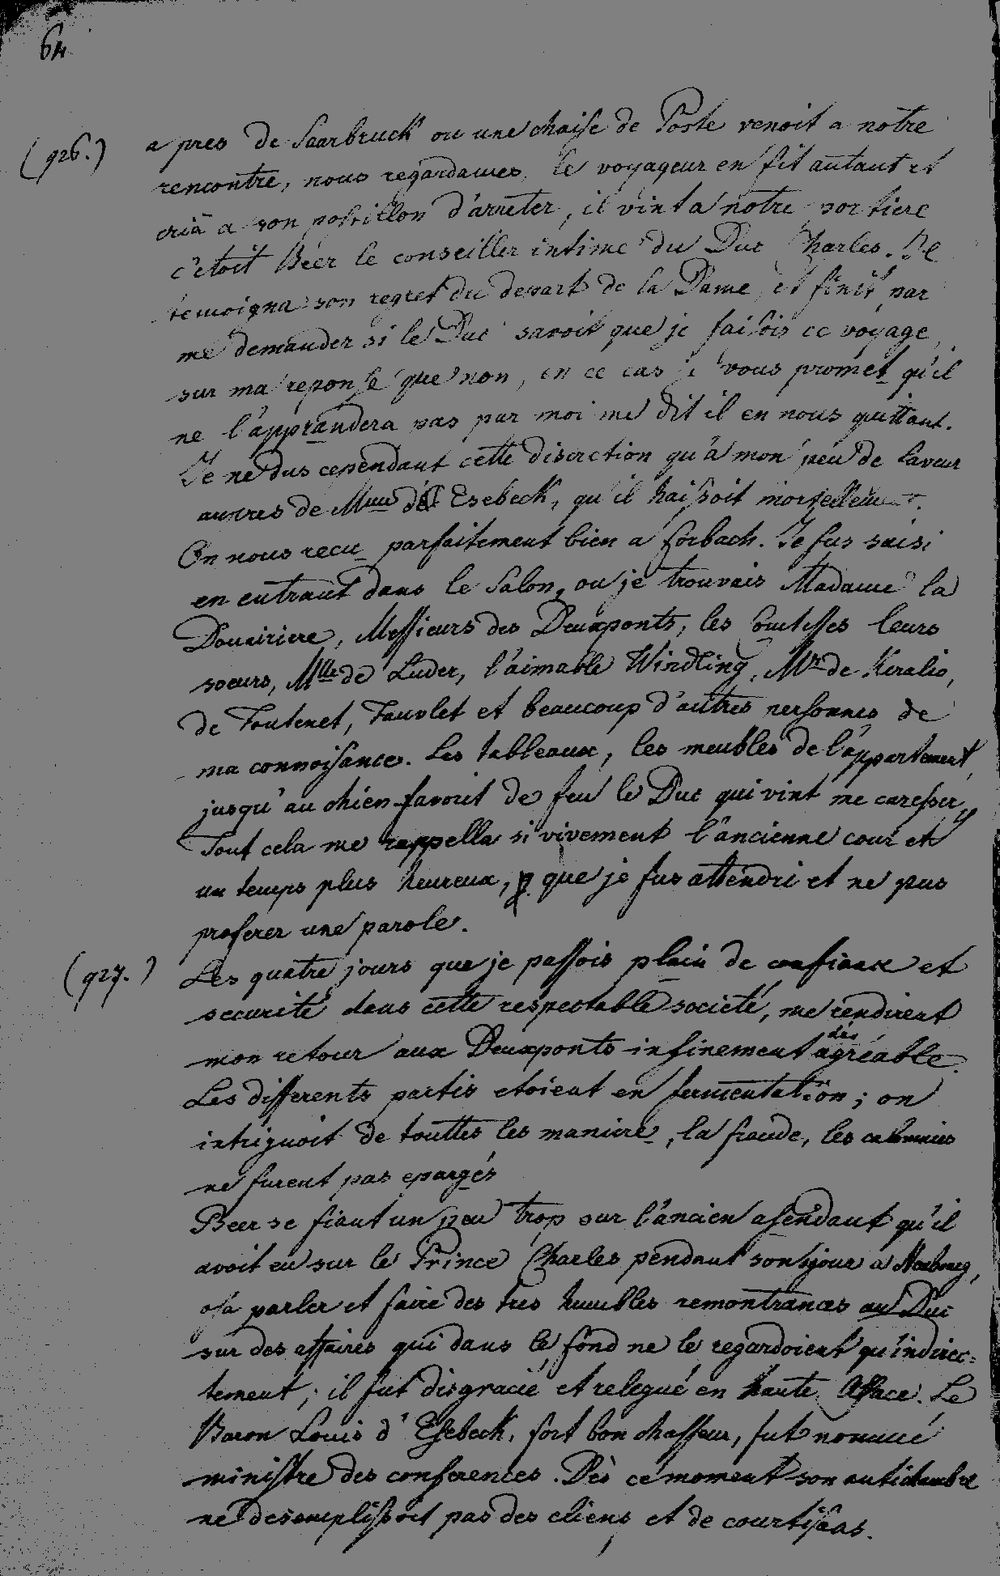 64
(926.) a pres de Saarbruck ou une chaise de Poste venoit a notre
rencontre, nous regardames, le voyageur en fit autant et
cria a son postillon d'arreter, il vint a notre portiere
c'etoit Béer le conseiller intime du Duc Charles. Il
temoigna son regret du depart de la Dame, et finit par
me demander si le Duc savoit que je faisois ce voyage,
sur ma reponse que non, en ce cas je vous promet qu'il
ne l'apprandera pas par moi me dit il en nous quittant.
Je ne dus cependant cette discretion qu'à mon peu de faveur
aupres de Mme d'Esebeck, qu'il haissoit mortellement.
On nous recu parfaitement bien a forbach. Je fus saisi
en entrant dans le Salon, ou je trouvais Madame la
Douairiere, Messieurs des Deuxponts, les Comtesses leurs
soeurs, Mlle de Luder, l'aimable Windling, Mr de Keralio,
de Fontenet, Fauvlet et beaucoup d'autres personnes de
ma connoisance. Les tableaux, les meubles de l'appartement,
jusqu'au chien favorit de feu le Duc qui vint me caresser,
Tout cela me rappella si vivement l'ancienne cour et
un temps plus heureux, que je fus attendri et ne pus
proferer une parole.
(927.) Les quatre jours que je passois plain de confiance et
securité dans cette respectable societé, me rendirent
mon retour aux Deuxponts infinement désagréable.
Les differents partis etoient en fermentation; on
intriguoit de touttes les maniere, la fraude, les calomnies
ne furent pas epargés
Beer se fiant un peu trop sur l'ancien asendant qu'il
avoit eu sur le Prince Charles pendant son sejour a Neubourg,
osa parler et faire des tres humbles remontrances au Duc
sur des affaires qui dans le fond ne le regardoient qu'indirec=
tement; il fut disgracié et relegué en haute Alsace. Le
Baron Louis d'Esebeck, fort bon chasseur, fut nommé
ministre des conferences. Dès ce moment son antichambre
ne desemplissoit pas des cliens et de courtisans.